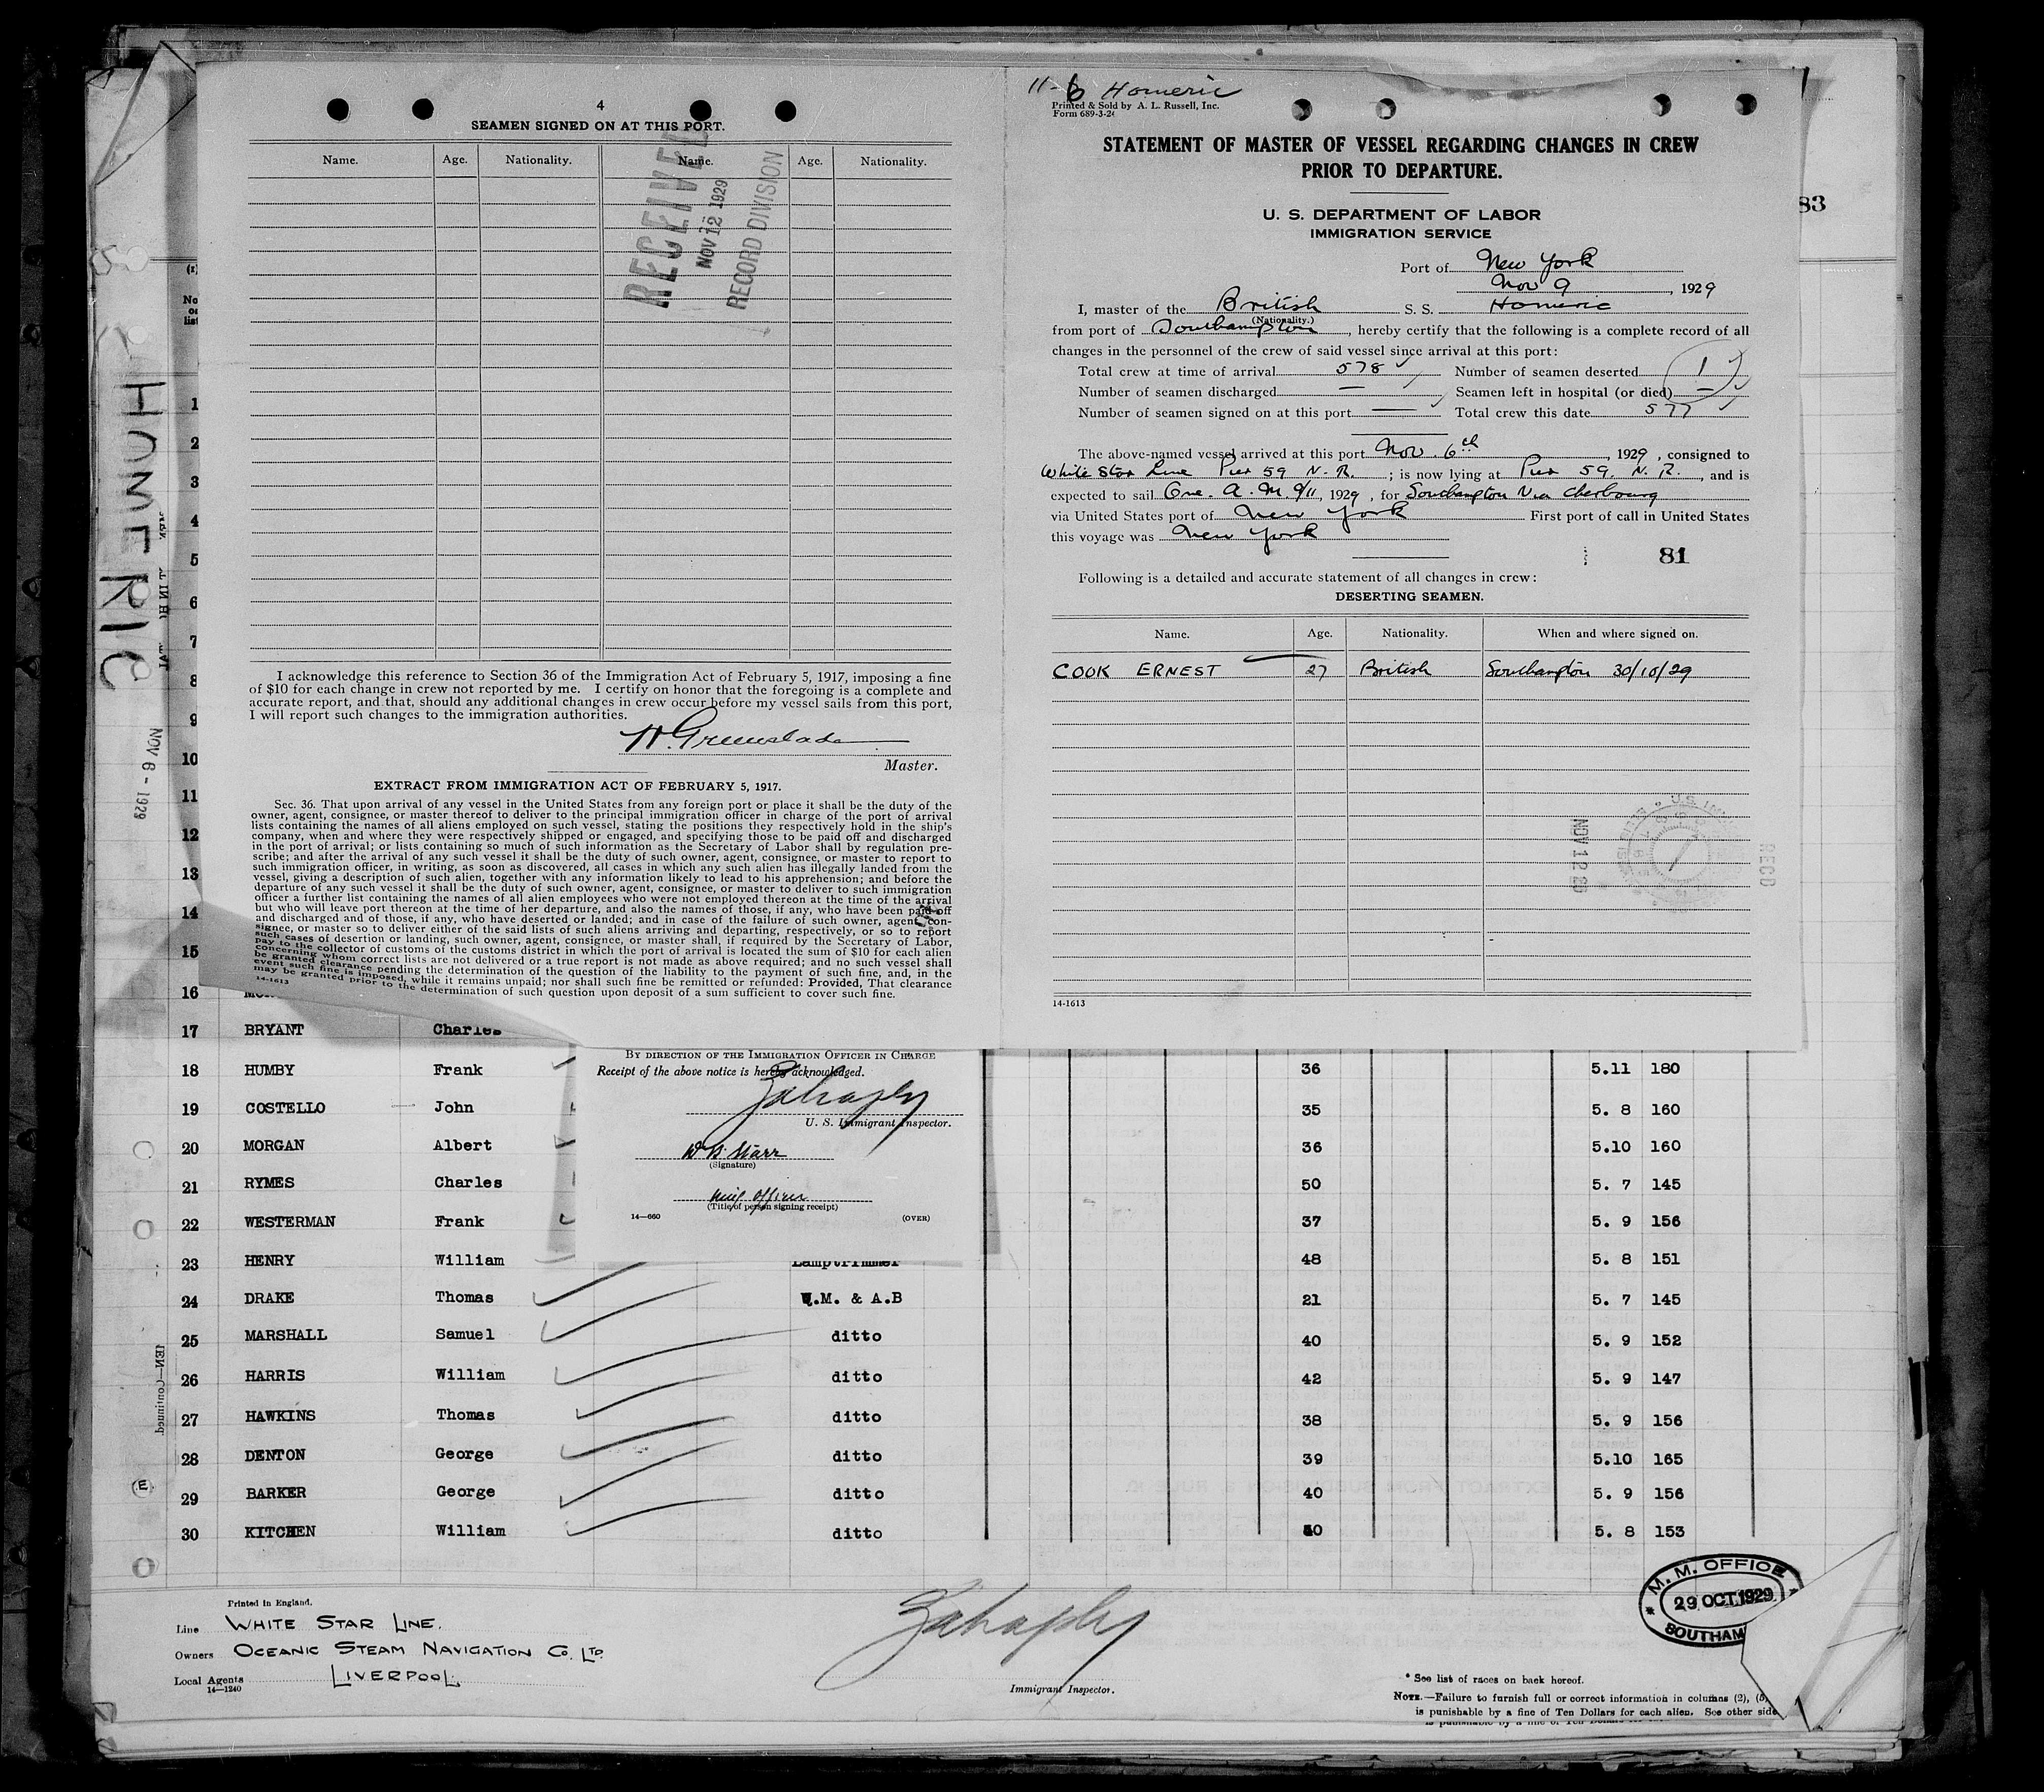 4
SEAMEN SIGNED ON AT THIS PORT.
Name. Age. Nationality. Name. Age. Nationality.
RECEIVED
NOV 12 1929
RECORD DIVISION
I acknowledge this reference to Section 36 of the Immigration Act of February 5, 1917, imposing a fine
of $10 for each change in crew not reported by me. I certify on honor that the foregoing is a complete and
accurate report, and that, should any additional changes in crew occur before my vessel sails from this port,
I will report such changes to the immigration authorities.
Master.
EXTRACT FROM IMMIGRATION ACT OF FEBRUARY 5, 1917.
Sec. 36. That upon arrival of any vessel in the United States from any foreign port or place it shall be the duty of the
owner, agent, consignee, or master thereof to deliver to the principal immigration officer in charge of the port of arrival
lists containing the names of all aliens employed on such vessel, stating the positions they respectively hold in the ship's
company, when and where they were respectively shipped or engaged, and specifying those to be paid off and discharged
in the port of arrival; or lists containing so much of such information as the Secretary of Labor shall by regulation pre-
scribe; and after the arrival of any such vessel it shall be the duty of such owner, agent, consignee, or master to report to
such immigration officer, in writing, as soon as discovered, all cases in which any such alien has illegally landed from the
vessel, giving a description of such alien, together with any information likely to lead to his apprehension; and before the
departure of any such vessel it shall be the duty of such owner, agent, consignee, or master to deliver to such immigration
officer a further list containing the names of all alien employees who were not employed thereon at the time of the arrival
but who will leave port thereon at the time of her departure, and also the names of those, if any, who have been paid off
and discharged and of those, if any, who have deserted or landed; and in case of the failure of such owner, agent, con-
signee, or master so to deliver either of the said lists of such aliens arriving and departing, respectively, or so to report
such cases of desertion or landing, such owner, agent, consignee, or master shall, if required by the Secretary of Labor,
pay to the collector of customs of the customs district in which the port of arrival is located the sum of $10 for each alien
concerning whom correct lists are not delivered or a true report is not made as above required; and no such vessel shall
be granted clearance pending the determination of the question of the liability to the payment of such fine, and, in the
event such fine is imposed, while it remains unpaid; nor shall such fine be remitted or refunded: Provided, That clearance
may be granted prior to the determination of such question upon deposit of a sum sufficient to cover such fine.
14-1613
11-6 Homeric
Printed & Sold by A. L. Russell, Inc.
Form 689-3-2
STATEMENT OF MASTER OF VESSEL REGARDING CHANGES IN CREW
PRIOR TO DEPARTURE.
U. S. DEPARTMENT OF LABOR
IMMIGRATION SERVICE
Port of New York
Nov 9, 1929
I, master of the British S. S. Homeric
(Nationality.)
from port of Southampton, hereby certify that the following is a complete record of all
changes in the personnel of the crew of said vessel since arrival at this port:
Total crew at time of arrival 578 Number of seamen deserted 1
Number of seamen discharged — Seamen left in hospital (or died) —
Number of seamen signed on at this port — Total crew this date 577
The above-named vessel arrived at this port Nov. 6th, 1929, consigned to
White Star Line Pier 59 N. R.; is now lying at Pier 59. N. R., and is
expected to sail One. A. M. 9/11, 1929, for Southampton Via Cherbourg
via United States port of New York First port of call in United States
this voyage was New York
81
Following is a detailed and accurate statement of all changes in crew:
DESERTING SEAMEN.
Name. Age. Nationality. When and where signed on.
COOK ERNEST 27 British Southampton 30/10/29
NOV 12 29
RECD
14-1613
83
HOMERIC
NOV 6 - 1929
1
2
3
4
5
6
7
8
9
10
11
12
13
14
15
16
17 BRYANT Charles
By direction of the Immigration Officer in Charge
Receipt of the above notice is hereby acknowledged.
U. S. Immigrant Inspector.
(Signature)
(Title of person signing receipt)
14—660 (OVER)
18 HUMBY Frank 36 5.11 180
19 COSTELLO John 35 5. 8 160
20 MORGAN Albert 36 5.10 160
21 RYMES Charles 50 5. 7 145
22 WESTERMAN Frank 37 5. 9 156
23 HENRY William Lamptrimmer 48 5. 8 151
24 DRAKE Thomas Q.M. & A.B 21 5. 7 145
25 MARSHALL Samuel ditto 40 5. 9 152
26 HARRIS William ditto 42 5. 9 147
27 HAWKINS Thomas ditto 38 5. 9 156
28 DENTON George ditto 39 5.10 165
29 BARKER George ditto 40 5. 9 156
30 KITCHEN William ditto 5. 8 153
Printed in England.
Line WHITE STAR LINE.
Owners OCEANIC STEAM NAVIGATION CO. LTD.
Local Agents LIVERPOOL.
14—1240
Immigrant Inspector.
M. M. OFFICE
29 OCT. 1929
SOUTHAM
* See list of races on back hereof.
NOTE.—Failure to furnish full or correct information in columns (2), (5)
is punishable by a fine of Ten Dollars for each alien. See other side